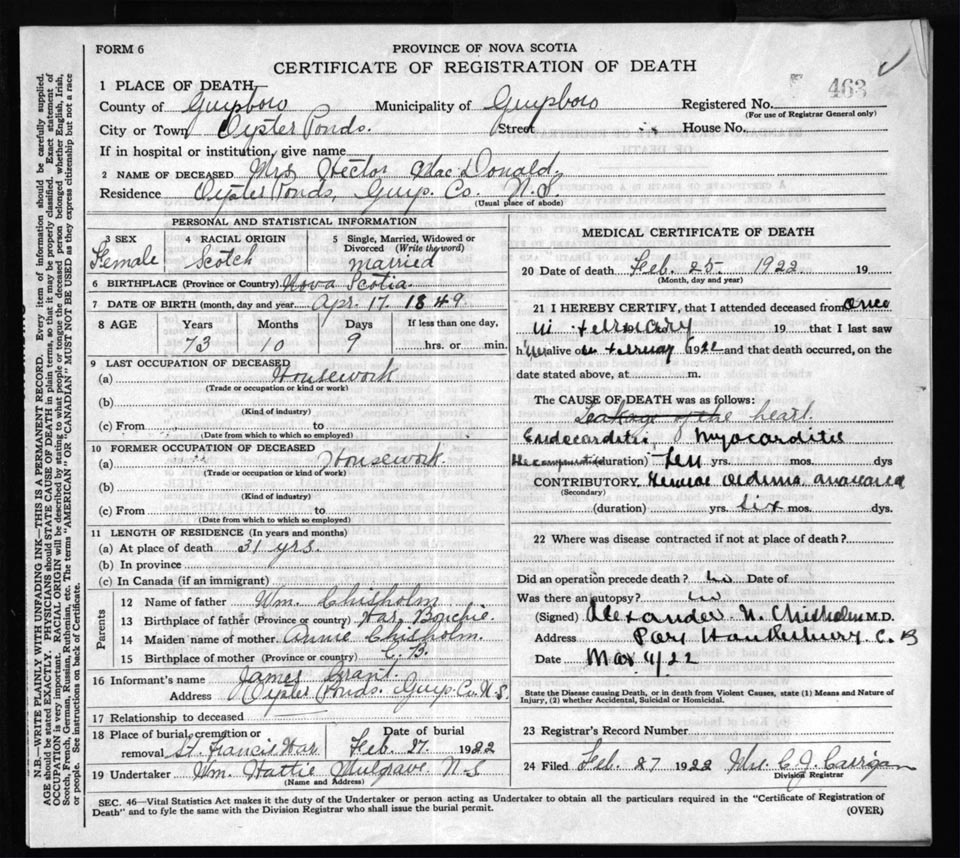 FORM 6
PROVINCE OF NOVA SCOTIA
CERTIFICATE OF REGISTRATION OF DEATH
463
1 PLACE OF DEATH
County of Guysboro Municipality of Guysboro Registered No.
(For use of Registrar General only)
City or Town Oyster Ponds. Street House No.
If in hospital or institution, give name
2 NAME OF DECEASED Mrs Hector MacDonald.
Residence Oyster Ponds, Guys. Co. N.S.
(Usual place of abode)
PERSONAL AND STATISTICAL INFORMATION
3 SEX 4 RACIAL ORIGIN 5 Single, Married, Widowed or Divorced (Write the word)
Female Scotch married
6 BIRTHPLACE (Province or Country) Nova Scotia.
7 DATE OF BIRTH (month, day and year) Apr. 17. 1849.
8 AGE Years Months Days If less than one day,
73 10 9 hrs. or min.
9 LAST OCCUPATION OF DECEASED
(a) Housework
(Trade or occupation or kind or work)
(b)
(Kind of industry)
(c) From to
(Date from which to which so employed)
10 FORMER OCCUPATION OF DECEASED
(a) Housework.
(Trade or occupation or kind of work)
(b)
(Kind of industry)
(c) From to
(Date from which to which so employed)
11 LENGTH OF RESIDENCE (In years and months)
(a) At place of death 31 yrs.
(b) In province
(c) In Canada (if an immigrant)
Parents
12 Name of father Wm. Chisholm
13 Birthplace of father (Province or country) Har. Bouchie.
14 Maiden name of mother. Annie Chisholm.
15 Birthplace of mother (Province or country) C.B.
16 Informant's name James Grant.
Address Oyster Ponds. Guys. Co. N.S.
17 Relationship to deceased
18 Place of burial, cremation or removal St. Francis Har. Date of burial Feb. 27. 1922
19 Undertaker Wm. Hattie Mulgrave N-S
(Name and Address)
MEDICAL CERTIFICATE OF DEATH
20 Date of death Feb. 25. 1922 19
(Month, day and year)
21 I HEREBY CERTIFY, that I attended deceased from once
in February 19 that I last saw
h er alive on February 1922 and that death occurred, on the
date stated above, at m.
The CAUSE OF DEATH was as follows:
Leakage of the heart.
Endocarditis, Myocarditis
(duration) Ten yrs. mos. dys
CONTRIBUTORY. oedema anasarca
(Secondary)
(duration) yrs. six mos. dys.
22 Where was disease contracted if not at place of death?
Did an operation precede death? no Date of
Was there an autopsy? no
(Signed) Alexander N. Chisholm M.D.
Address Port Hawkesbury C.B
Date Mar 4/22
State the Disease causing Death, or in death from Violent Causes, state (1) Means and Nature of Injury, (2) whether Accidental, Suicidal or Homicidal.
23 Registrar's Record Number
24 Filed Feb. 27 1922 Mrs. C. J. Carrigan
Division Registrar
SEC. 46—Vital Statistics Act makes it the duty of the Undertaker or person acting as Undertaker to obtain all the particulars required in the "Certificate of Registration of
Death" and to fyle the same with the Division Registrar who shall issue the burial permit. (OVER)
N.B.—WRITE PLAINLY WITH UNFADING INK—THIS IS A PERMANENT RECORD. Every item of information should be carefully supplied.
AGE should be stated EXACTLY. PHYSICIANS should STATE CAUSE OF DEATH in plain terms, so that it may be properly classified. Exact statement of
OCCUPATION is very important. RACIAL ORIGIN will be described by stating to what people or tongue the deceased person belonged whether English, Irish,
Scotch, French, German, Russian, Ruthenian, etc. The terms "AMERICAN" or "CANADIAN" MUST NOT BE USED as they express citizenship but not a race
or people. See instructions on back of Certificate.